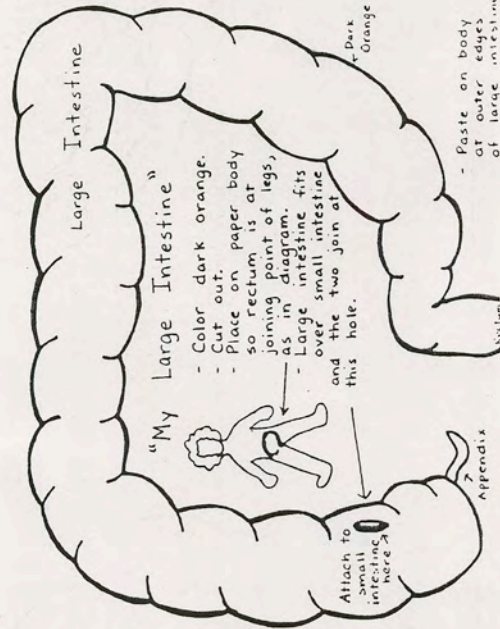 Large Intestine
"My Large Intestine"
- Color dark orange.
- Cut out.
- Place on paper body
so rectum is at
joining point of legs,
as in diagram.
- Large intestine fits
over small intestine
and the two join at
this hole.
Attach to
small
intestine
here
Appendix
Dark
Orange
- Paste on body
at outer edges
of large